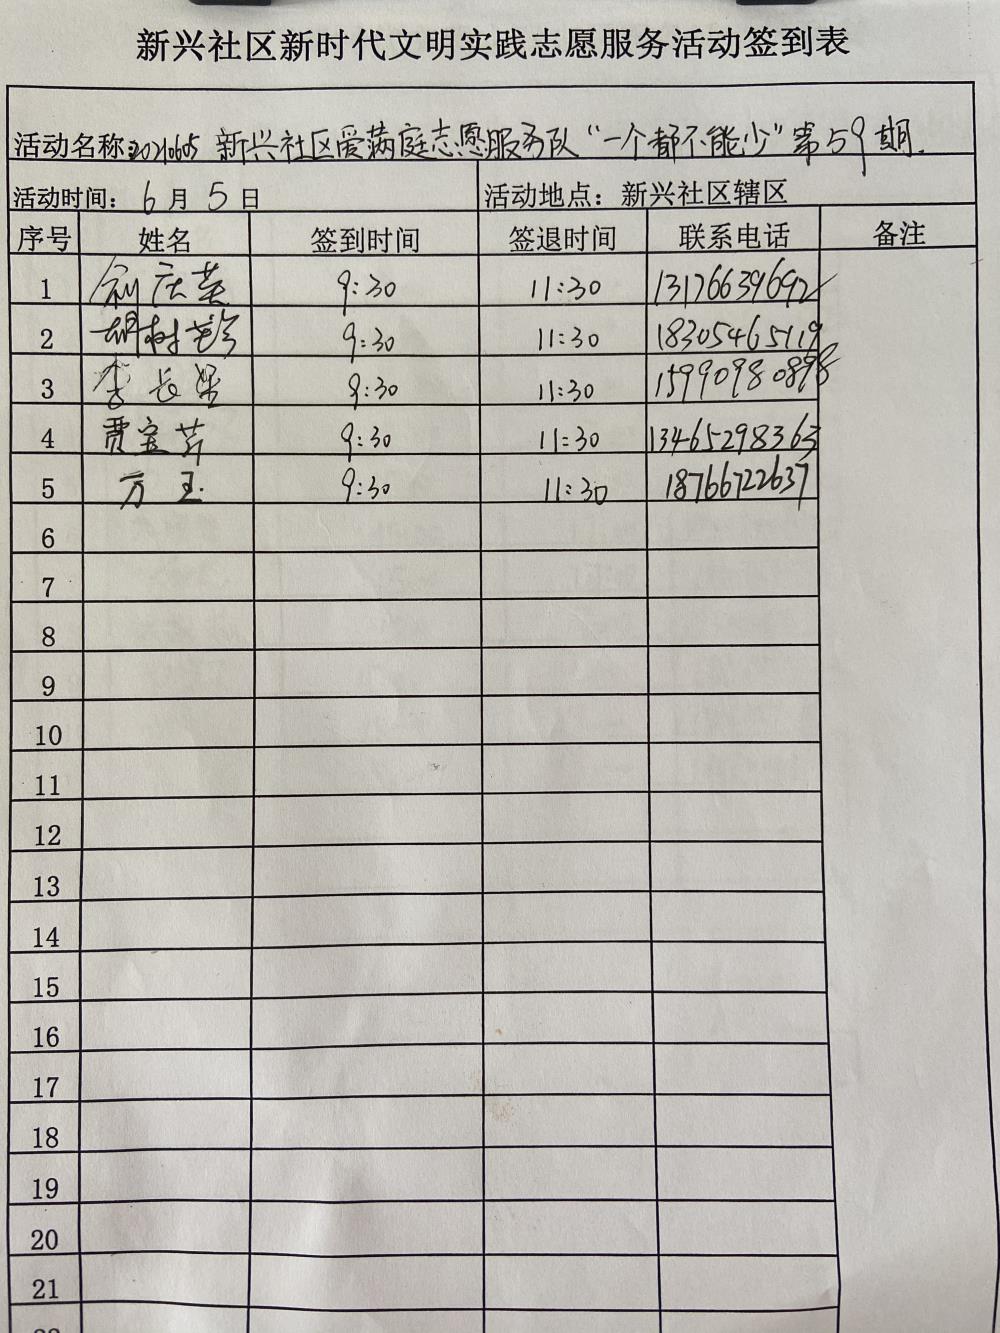 新兴社区新时代文明实践志愿服务活动签到表
活动名称:20210605 新兴社区爱满庭志愿服务队“一个都不能少”第59期.
活动时间: 6月5日 活动地点: 新兴社区辖区
序号 姓名 签到时间 签退时间 联系电话 备注
1 刘庆英 9:30 11:30 13176639692
2 胡树 9:30 11:30 18305465119
3 李长 9:30 11:30 15990980898
4 贾宝芹 9:30 11:30 13465298363
5 万玉 9:30 11:30 18766722637
6
7
8
9
10
11
12
13
14
15
16
17
18
19
20
21